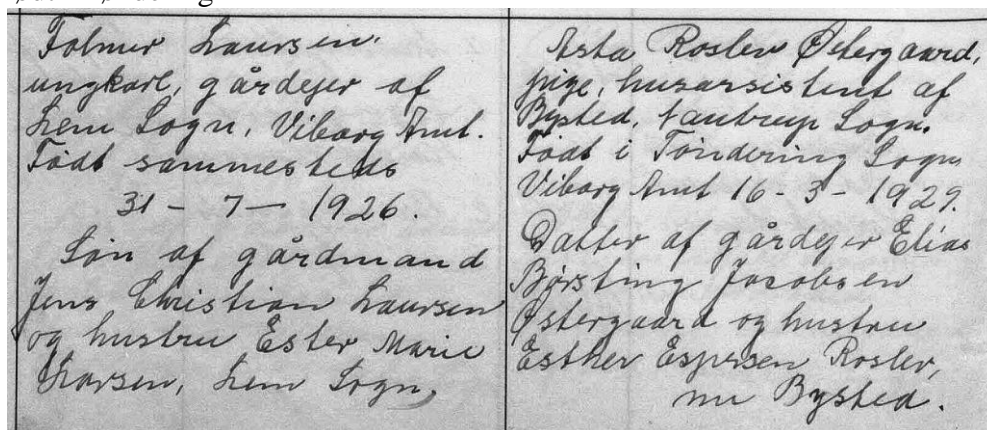 Folmer Laursen.
ungkarl, gårdejer af
Lem Sogn, Viborg Amt.
Født sammesteds
31 - 7 - 1926.
Søn af gårdmand
Jens Christian Laursen
og hustru Ester Marie
Larsen, Lem Sogn,
Asta Roslev Østergaard,
pige, husassistent af
Bysted, Nautrup Sogn.
Født i Tøndering Sogn
Viborg Amt 16 - 3 - 1929.
Datter af gårdejer Elias
Børsting Jacobsen
Østergaard og hustru
Esther Espersen Roslev,
nu Bysted.